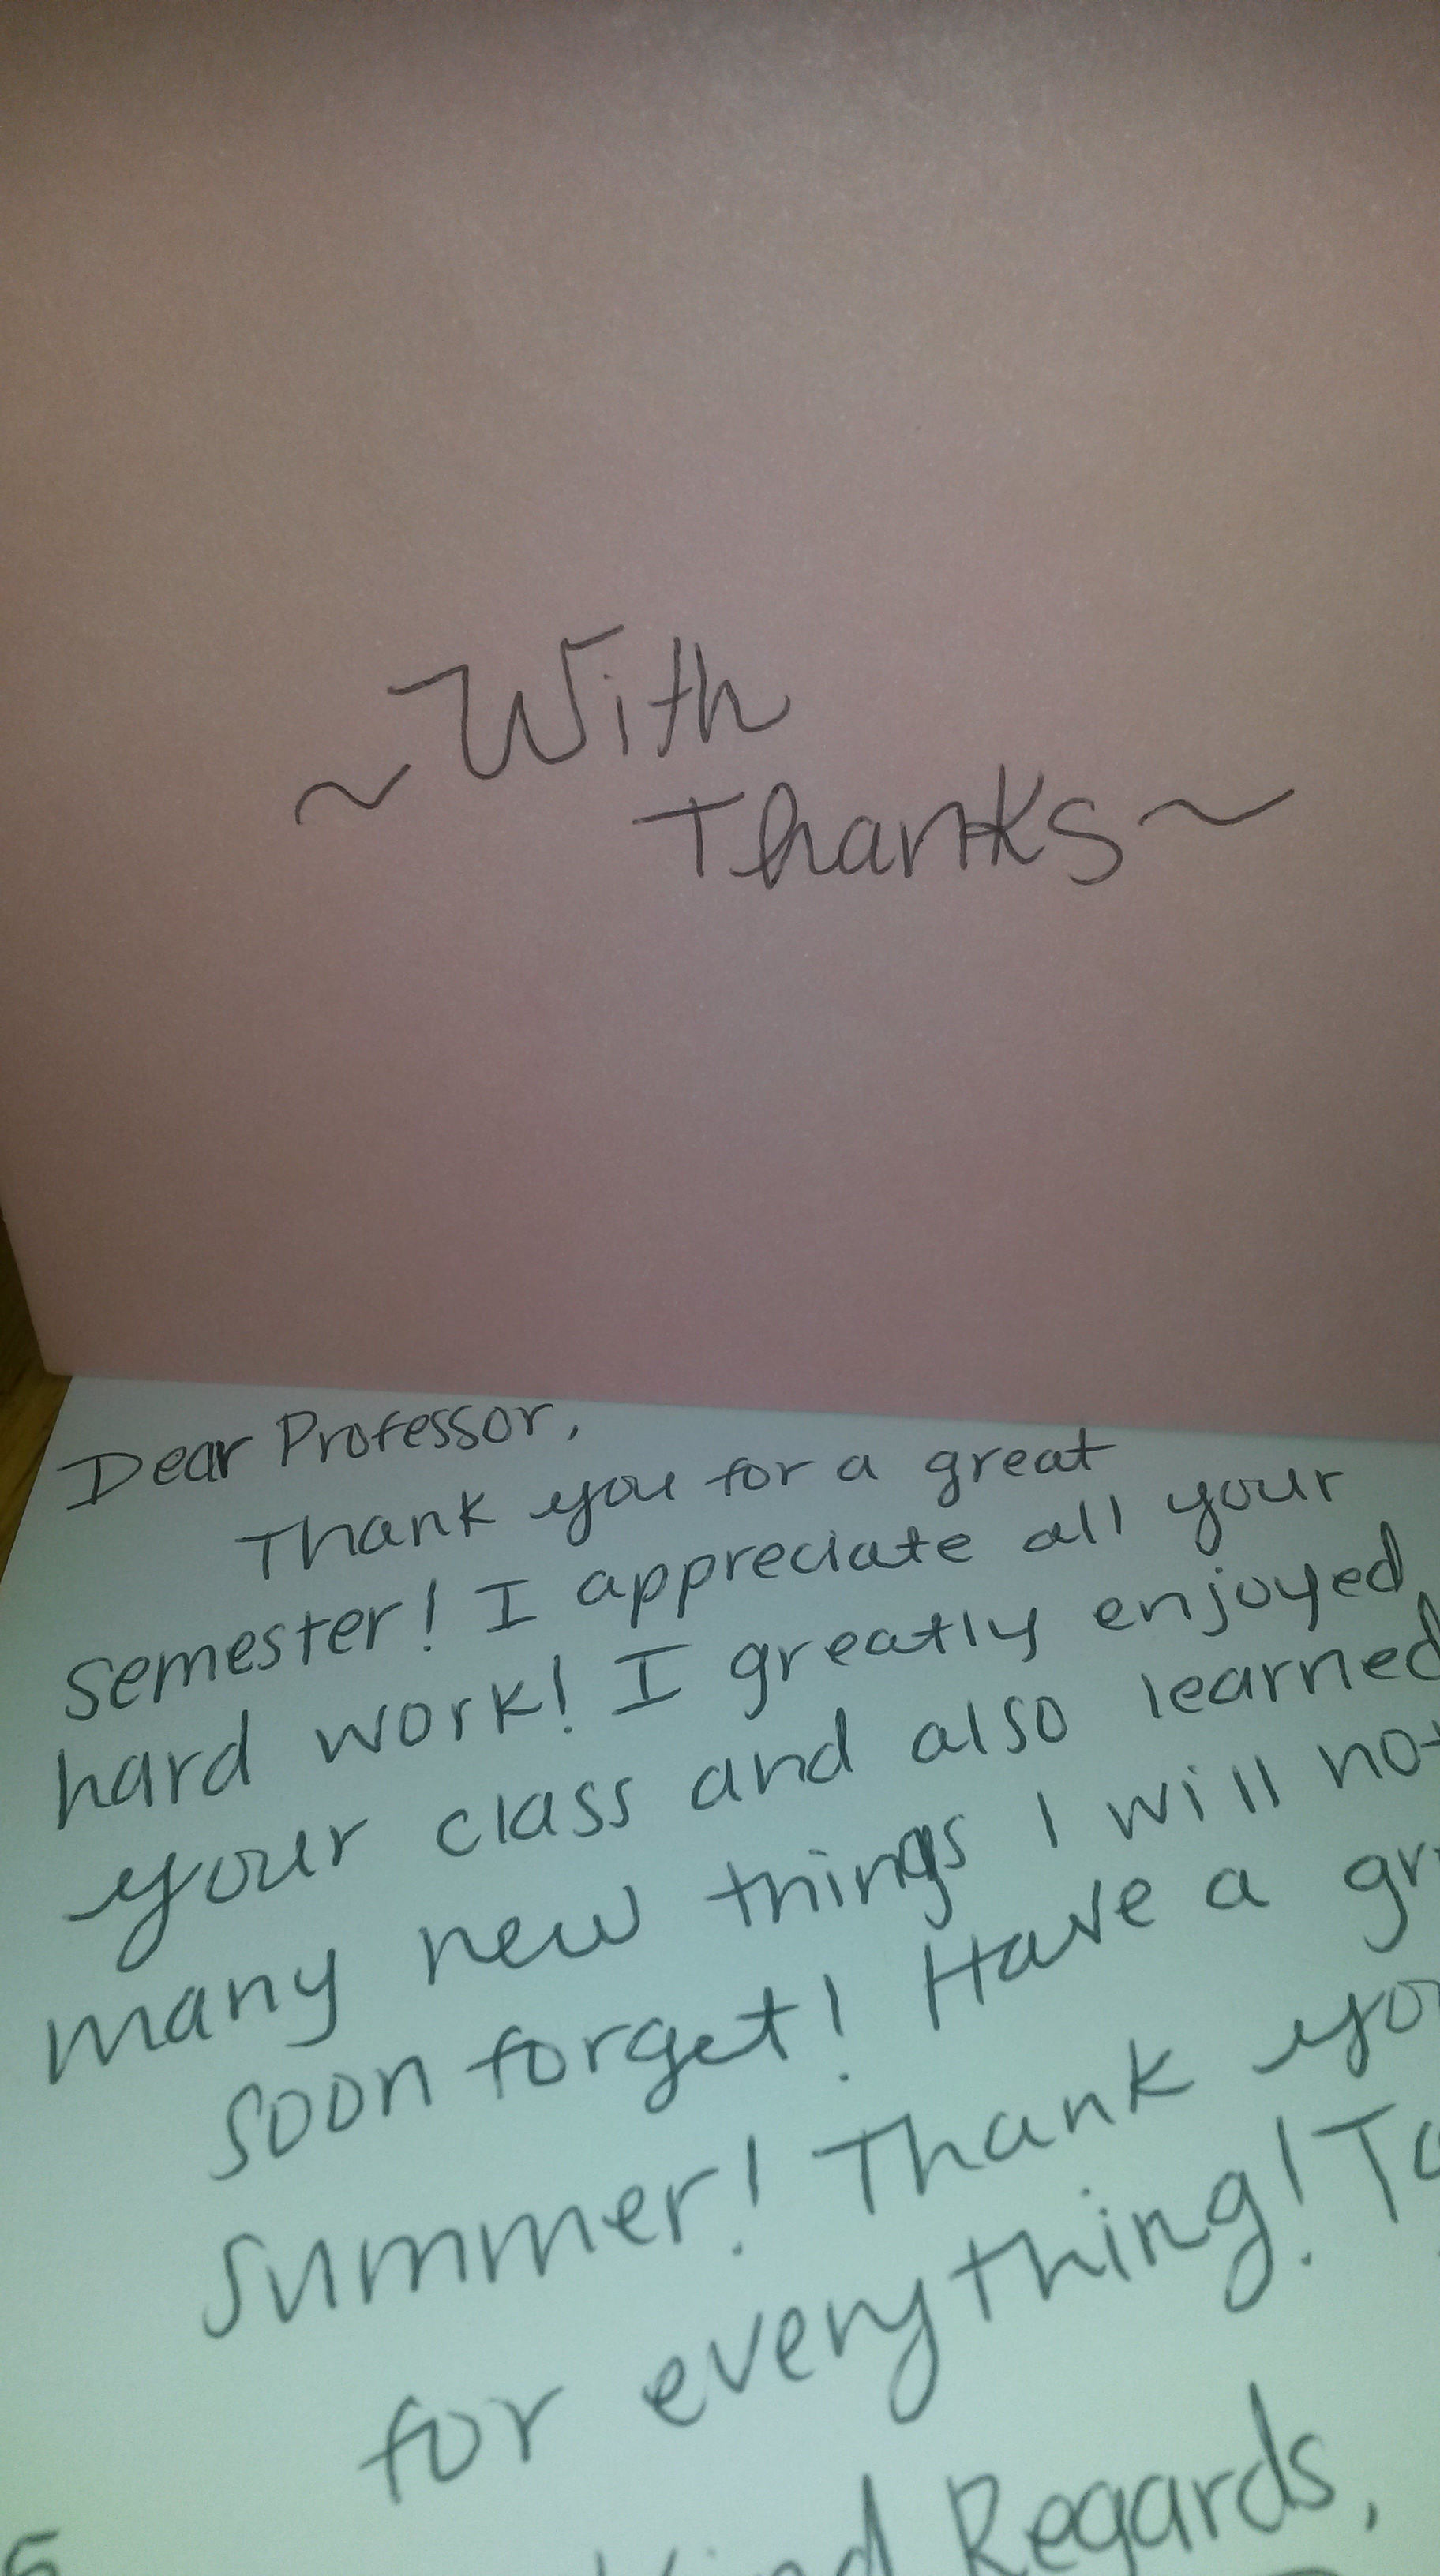 ~With
Thanks~
Dear Professor,
Thank you for a great
semester! I appreciate all your
hard work! I greatly enjoyed
your class and also learned
many new things I will not
soon forget! Have a
summer! Thank
for everything!
Regards,